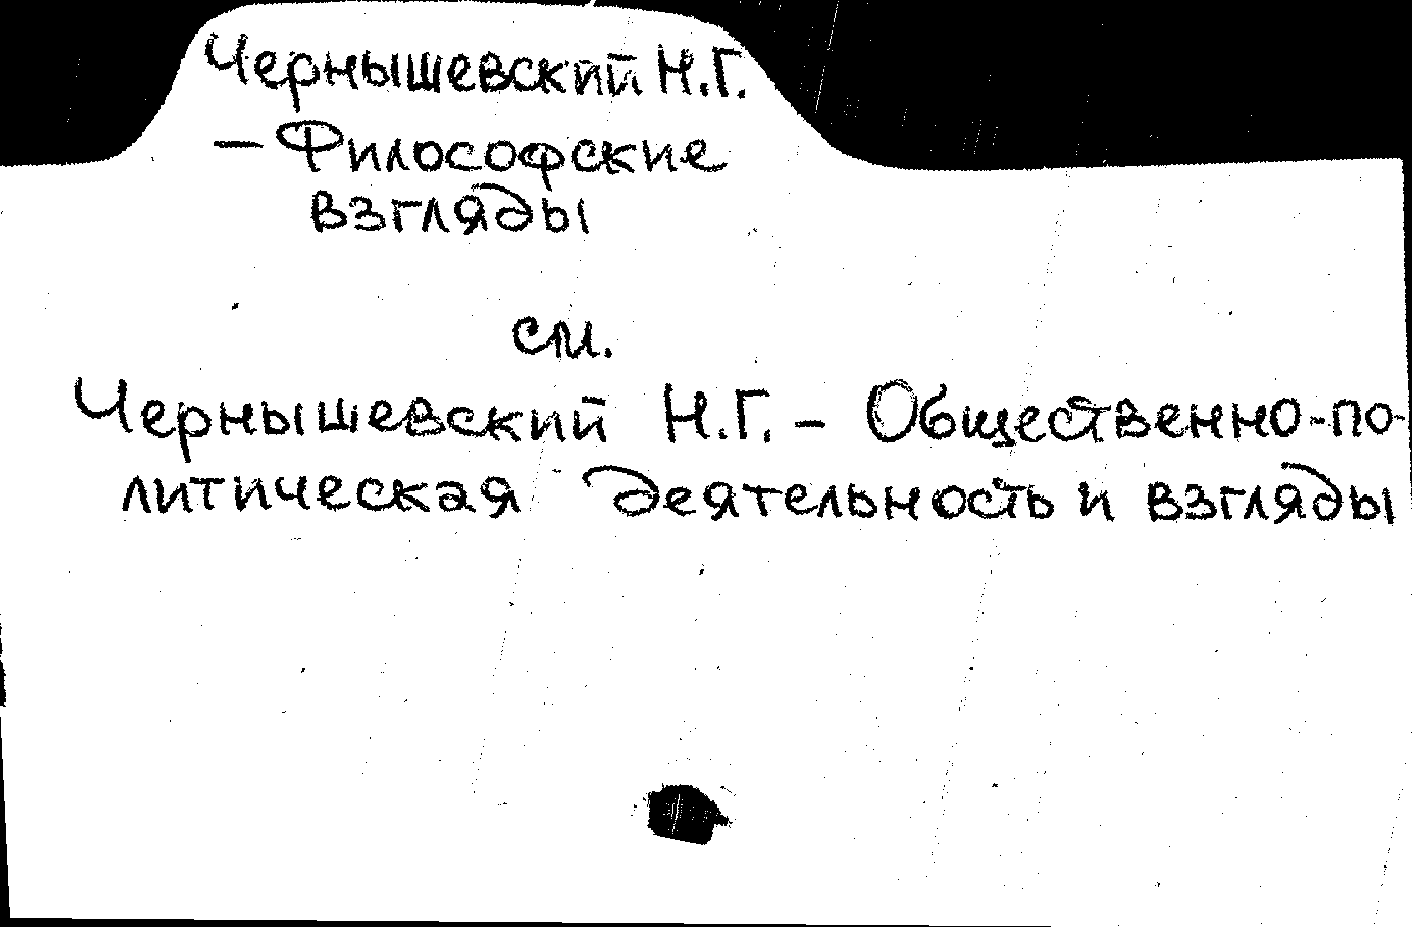 Чернышевский Н.Г.
— Философские
взгляды
см.
Чернышевский Н.Г. – Общественно-по-
литическая деятельность и взгляды